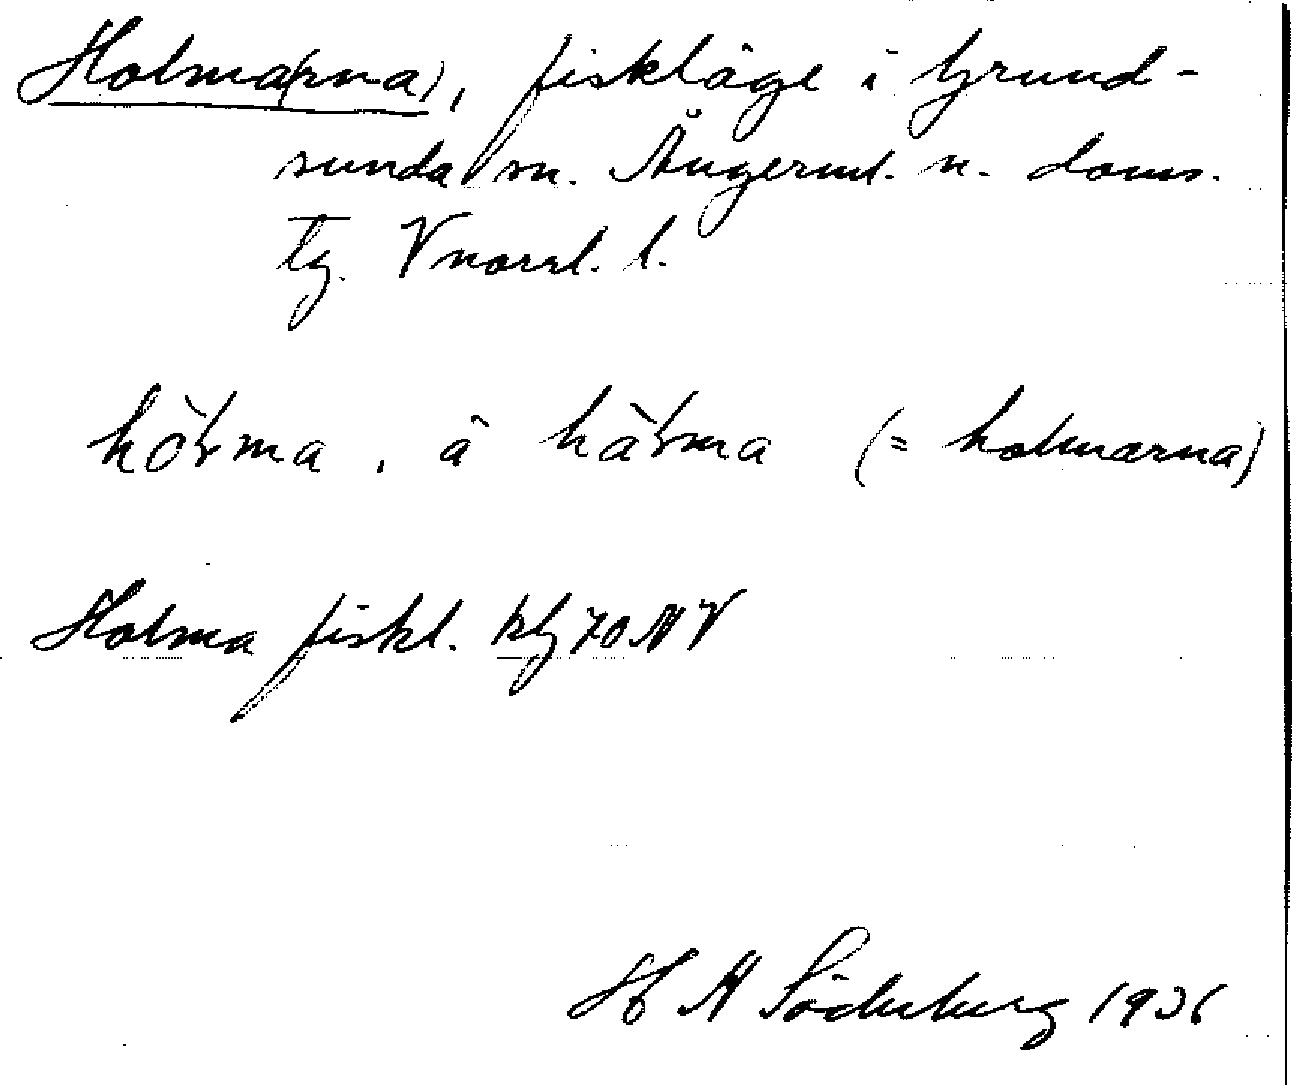 Holma(rna), fiskläge i Grund-
sunda sn. Ångerml. n. doms.
tg. Vnorrl. l.
hòɽma, å hàɽma (= holmarna)
Holma fiskl. kbl 70 NV
H N Söderberg 1936